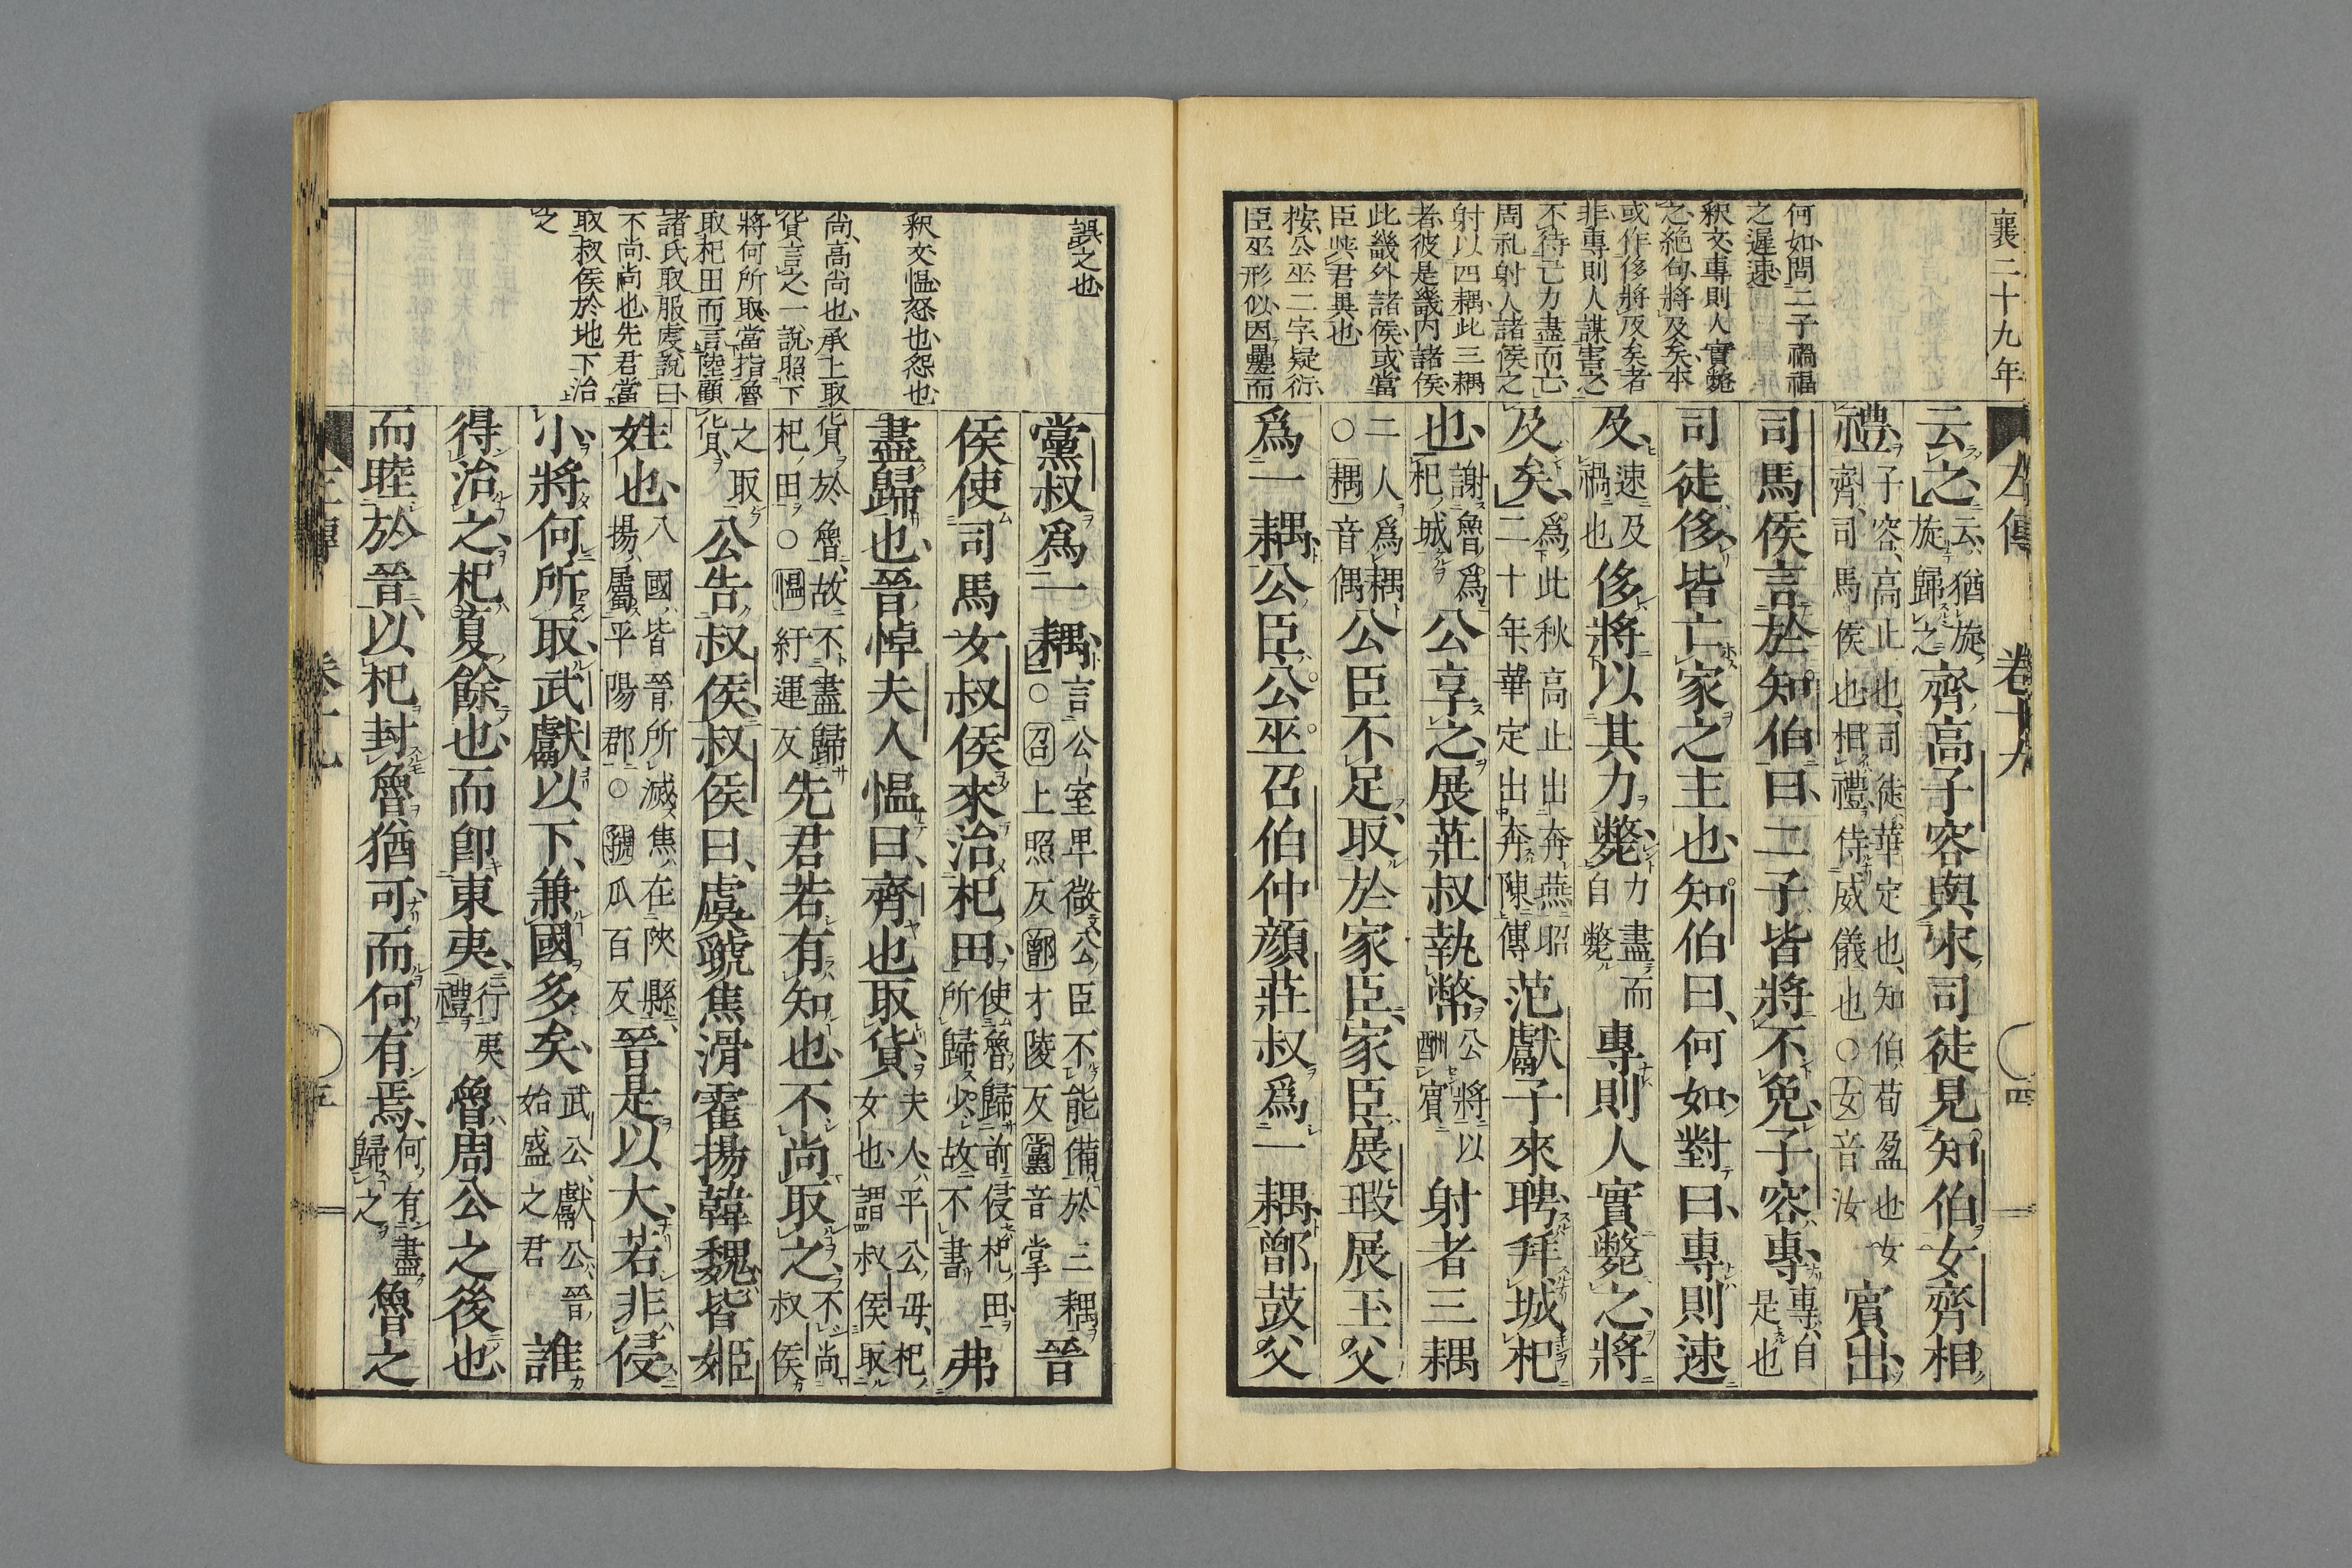 襄二十九年
左傳 卷十九 四
何如問二子禍福
之遲速
釈文專則人實斃
之絶句將及矣本
或作侈將及矣者
非專則人謀害之
不待亡力盡而亡
周礼射人諸侯之
射以四耦此三耦
者彼是畿内諸侯
此畿外諸侯或當
臣與君異也
按公巫二字疑衍
臣巫形似因疊而
云之云猶旋旋歸之齊高子容與宋司徒見知伯女齊相
禮子容高止也司徒華定也知伯荀盈也女齊司馬侯也相禮侍威儀也○女音汝賓出
司馬侯言於知伯曰二子皆將不免子容專專自是也
司徒侈皆亡家之主也知伯曰何如對曰專則速
及速及禍也侈將以其力斃力盡而自斃專則人實斃之將
及矣爲此秋高止出奔燕昭二十年華定出奔陳傳范獻子來聘拜城杞
也謝魯爲杞城公享之展莊叔執幣公將以酬賓射者三耦
二人爲耦○耦音偶公臣不足取於家臣家臣展瑕展玉父
爲一耦公臣公巫召伯仲顔莊叔爲一耦鄫鼓父
誤之也
釈文慍怒也怨也
尚高尚也承上取
貨言之一說照下
將何所取當指魯
取杞田而言陸顧
諸氏取服虔說曰
不尚尚也先君當
取叔侯於地下治
之
黨叔爲一耦言公室卑微公臣不能備於三耦○召上照反鄫才陵反黨音掌晉
侯使司馬女叔侯來治杞田使魯歸前侵杞田所歸少故不書弗
盡歸也晉悼夫人慍曰齊也取貨夫人平公母杞女也謂叔侯取
貨於魯故不盡歸杞田○慍紆運反先君若有知也不尚取之不尚叔侯
之取貨公告叔侯叔侯曰虞虢焦滑霍揚韓魏皆姬
姓也八國皆晉所滅焦在陜縣揚屬平陽郡○虢瓜百反晉是以大若非侵
小將何所取武獻以下兼國多矣武公獻公晉始盛之君誰
得治之杞夏餘也而卽東夷行夷禮魯周公之後也
而睦於晉以杞封魯猶可而何有焉何有盡歸之魯之